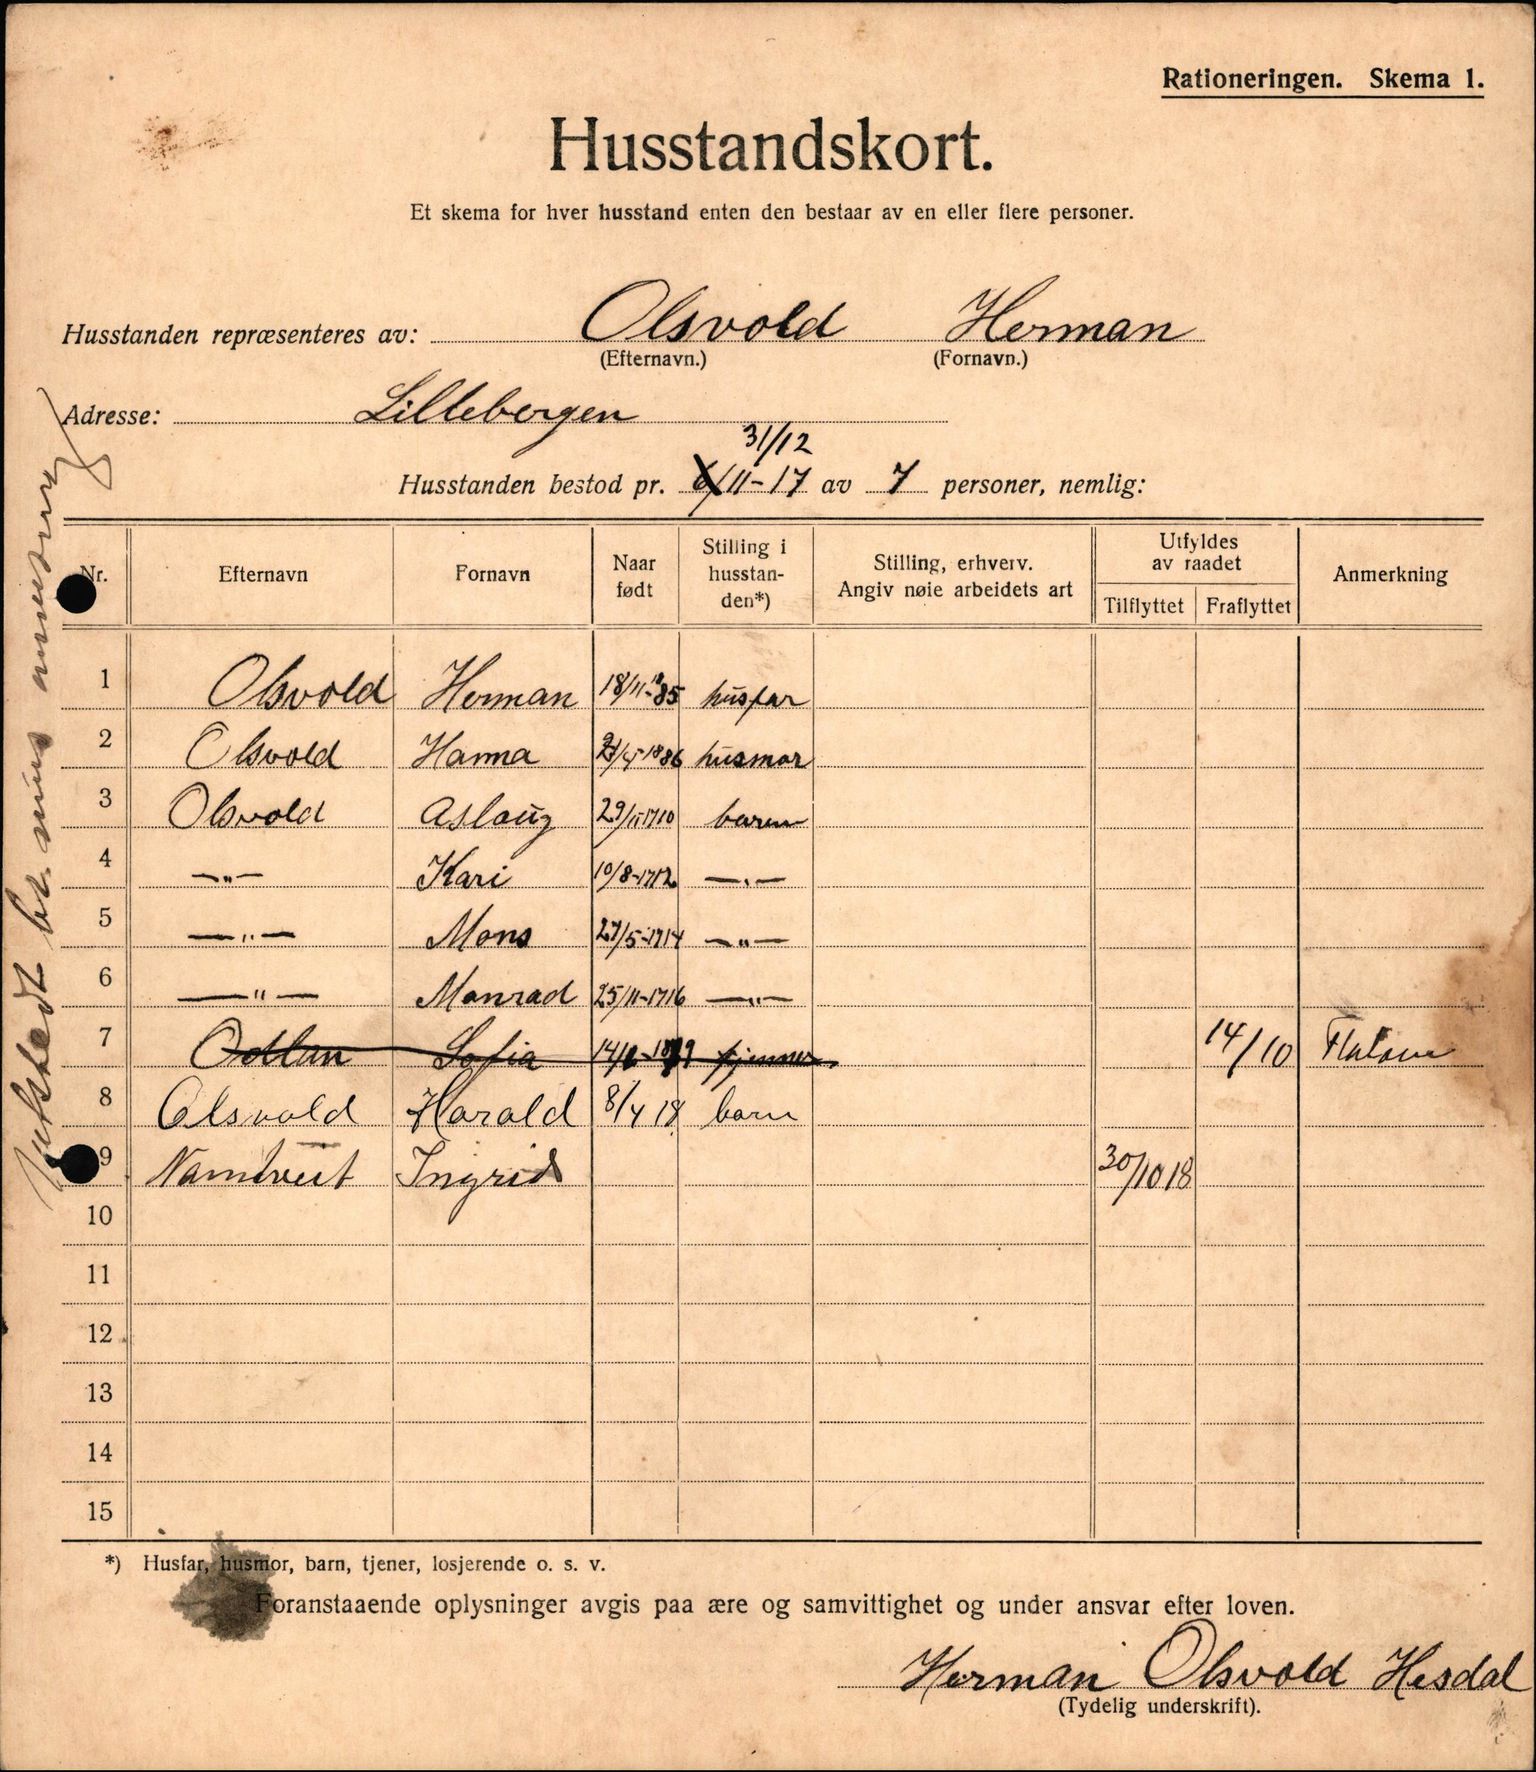 Rationeringen. Skema 1.
Husstandskort.
Et skema for hver husstand enten den bestaar av en eller flere personer.
Husstanden repræsenteres av: Olsvold Herman
(Efternavn.) (Fornavn.)
Adresse: Lillebergen
31/12
Husstanden bestod pr. 6/11-17 av 7 personer, nemlig:
Nr. Efternavn Fornavn Naar født Stilling i husstanden*) Stilling, erhverv. Angiv nøie arbeidets art Utfyldes av raadet Tilflyttet Fraflyttet Anmerkning
1 Olsvold Herman 18/11-1885 husfar
2 Olsvold Hanna husmor
3 Olsvold Aslaug 29/11-1910 barn
4 —"— Kari 10/8-1912 —"—
5 —"— Mons 27/5-1914 —"—
6 —"— Monrad 25/11-1916 —"—
7 Odlan Sofia tjenner 14/10
8 Olsvold Harald 8/4 18 barn
9 Namtveit Ingrid 30/10 18
10
11
12
13
14
15
*) Husfar, husmor, barn, tjener, losjerende o. s. v.
Foranstaaende oplysninger avgis paa ære og samvittighet og under ansvar efter loven.
Herman Olsvold Hesdal
(Tydelig underskrift).